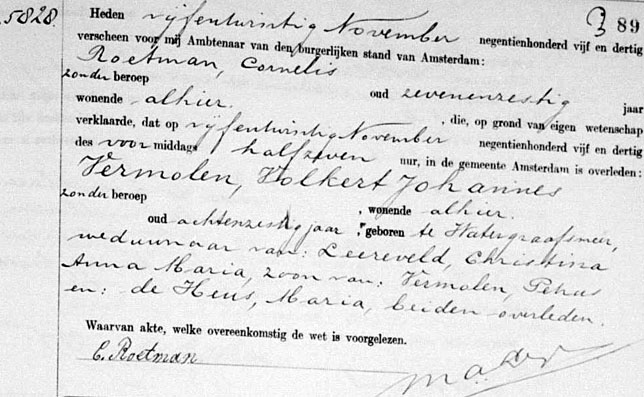 5828.
Heden vijfentwintig November negentienhonderd vijf en dertig 89
verscheen voor mij Ambtenaar van den burgerlijken stand van Amsterdam:
Roetman, Cornelis
zonder beroep oud zevenenzestig jaar
wonende alhier. , die, op grond van eigen wetenschap
verklaarde, dat op vijfentwintig November negentienhonderd vijf en dertig
des voormiddags halfzeven uur, in de gemeente Amsterdam is overleden:
Vermolen, Volkert Johannes
zonder beroep , wonende alhier.
oud achtenzestig jaar, geboren te Watergraafsmeer,
weduwnaar van: Leereveld, Christina
Anna Maria, zoon van: Vermolen, Petrus
en: de Heus, Maria, beiden overleden.
Waarvan akte, welke overeenkomstig de wet is voorgelezen.
C. Roetman